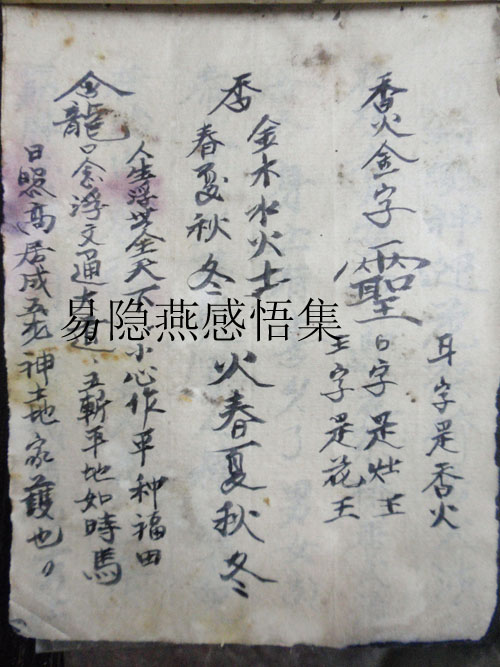 香火金字
靈
耳字是香火
口字是灶王
王字是花王
香
金木水火土
春夏秋冬
火春夏秋冬
人生浮世全天下
小心作平种福田
念
龍
口念浮文通
五斬平地如時馬
日照高居成五
神土地家護也
易隐燕感悟集